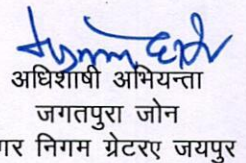 अधिशाषी अभियन्ता
जगतपुरा जोन
गर निगम ग्रेटरए जयपुर